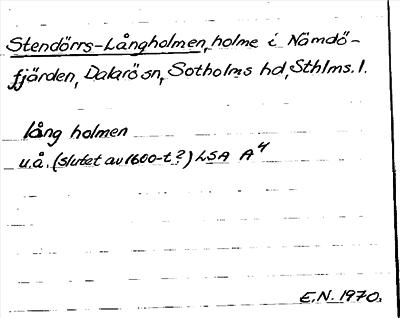 Stendörrs-Långholmen, holme i Nämdö-
fjärden, Dalarö sn, Sotholms hd, Sthlms. l.
lång holmen
u.å. (slutet av 1600-t?) LSA A4
E.N. 1970.